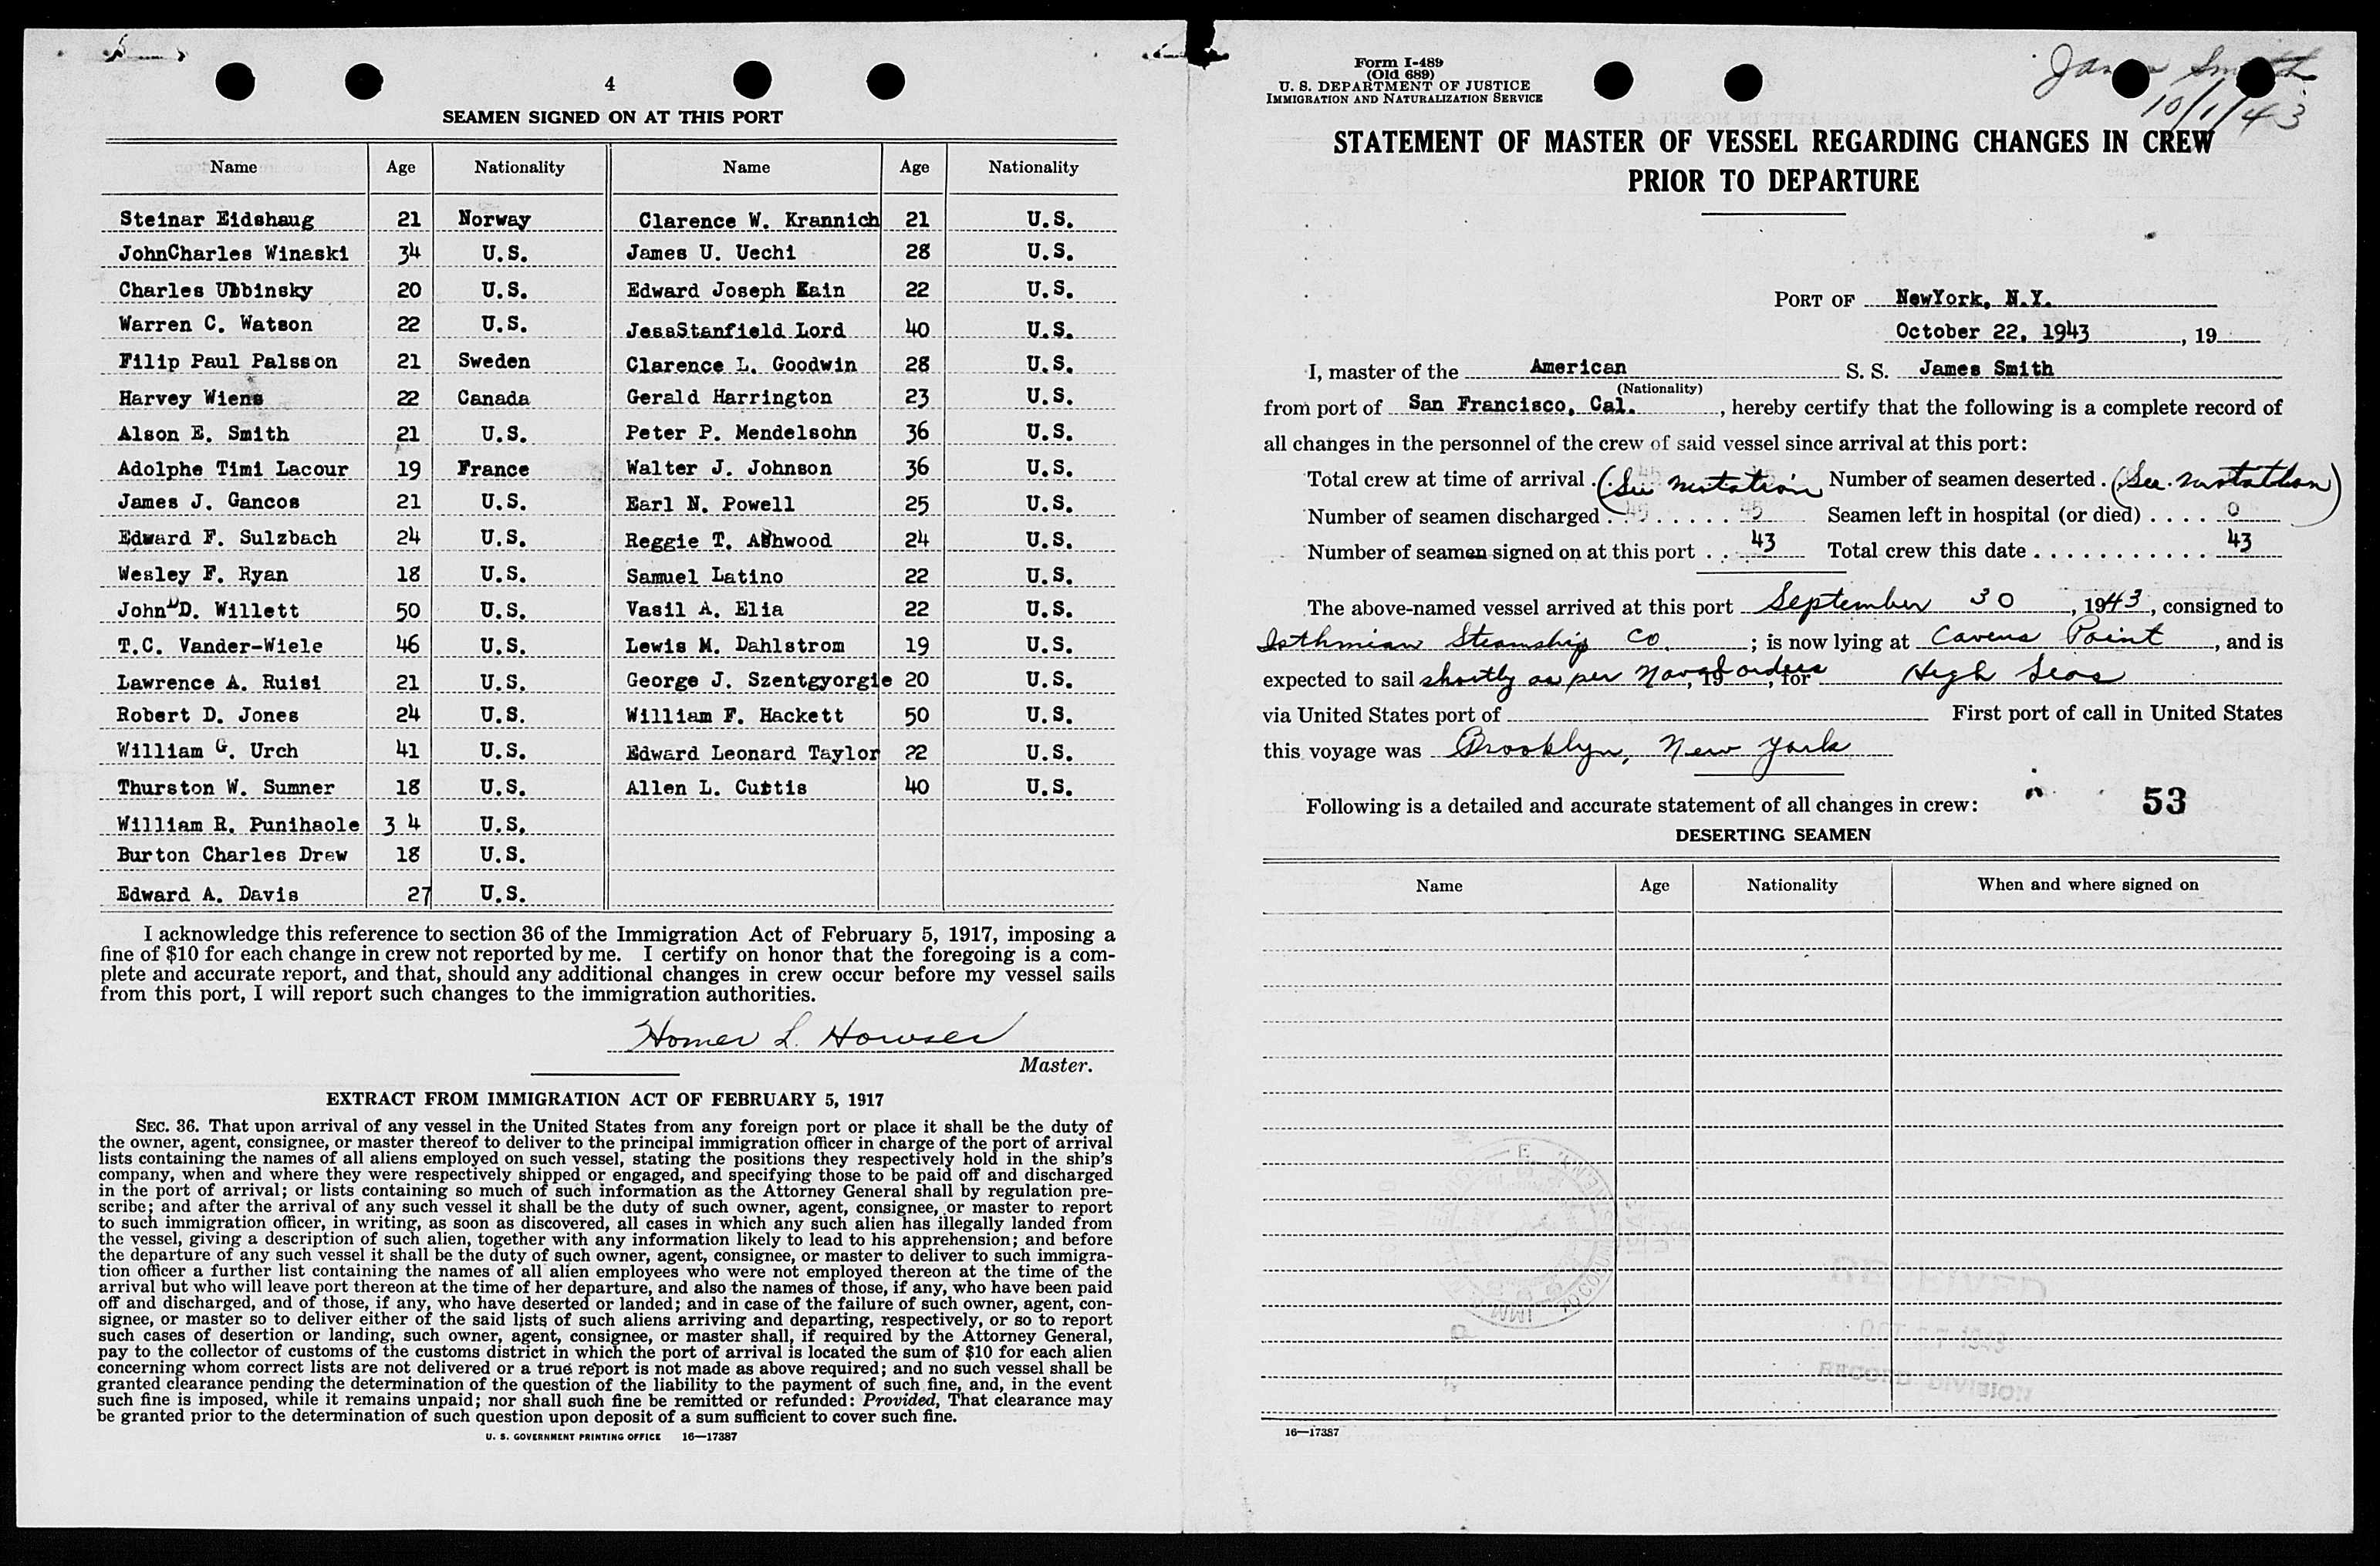 4
SEAMEN SIGNED ON AT THIS PORT
Name Age Nationality Name Age Nationality
Steinar Eidshaug 21 Norway Clarence W. Krannich 21 U.S.
JohnCharles Winaski 34 U.S. James U. Uechi 28 U.S.
Charles Ubbinsky 20 U.S. Edward Joseph Kain 22 U.S.
Warren C. Watson 22 U.S. JessStanfield Lord 40 U.S.
Filip Paul Palsson 21 Sweden Clarence L. Goodwin 28 U.S.
Harvey Wiens 22 Canada Gerald Harrington 23 U.S.
Alson E. Smith 21 U.S. Peter P. Mendelsohn 36 U.S.
Adolphe Timi Lacour 19 France Walter J. Johnson 36 U.S.
James J. Gancos 21 U.S. Earl N. Powell 25 U.S.
Edward F. Sulzbach 24 U.S. Reggie T. Ashwood 24 U.S.
Wesley F. Ryan 18 U.S. Samuel Latino 22 U.S.
John D. Willett 50 U.S. Vasil A. Elia 22 U.S.
T.C. Vander-Wiele 46 U.S. Lewis M. Dahlstrom 19 U.S.
Lawrence A. Ruisi 21 U.S. George J. Szentgyorgie 20 U.S.
Robert D. Jones 24 U.S. William F. Hackett 50 U.S.
William G. Urch 41 U.S. Edward Leonard Taylor 22 U.S.
Thurston W. Sumner 18 U.S. Allen L. Curtis 40 U.S.
William R. Punihaole 34 U.S.
Burton Charles Drew 18 U.S.
Edward A. Davis 27 U.S.
I acknowledge this reference to section 36 of the Immigration Act of February 5, 1917, imposing a
fine of $10 for each change in crew not reported by me. I certify on honor that the foregoing is a com-
plete and accurate report, and that, should any additional changes in crew occur before my vessel sails
from this port, I will report such changes to the immigration authorities.
Homer L. Howser
Master.
EXTRACT FROM IMMIGRATION ACT OF FEBRUARY 5, 1917
SEC. 36. That upon arrival of any vessel in the United States from any foreign port or place it shall be the duty of
the owner, agent, consignee, or master thereof to deliver to the principal immigration officer in charge of the port of arrival
lists containing the names of all aliens employed on such vessel, stating the positions they respectively hold in the ship's
company, when and where they were respectively shipped or engaged, and specifying those to be paid off and discharged
in the port of arrival; or lists containing so much of such information as the Attorney General shall by regulation pre-
scribe; and after the arrival of any such vessel it shall be the duty of such owner, agent, consignee, or master to report
to such immigration officer, in writing, as soon as discovered, all cases in which any such alien has illegally landed from
the vessel, giving a description of such alien, together with any information likely to lead to his apprehension; and before
the departure of any such vessel it shall be the duty of such owner, agent, consignee, or master to deliver to such immigra-
tion officer a further list containing the names of all alien employees who were not employed thereon at the time of the
arrival but who will leave port thereon at the time of her departure, and also the names of those, if any, who have been paid
off and discharged, and of those, if any, who have deserted or landed; and in case of the failure of such owner, agent, con-
signee, or master so to deliver either of the said lists of such aliens arriving and departing, respectively, or so to report
such cases of desertion or landing, such owner, agent, consignee, or master shall, if required by the Attorney General,
pay to the collector of customs of the customs district in which the port of arrival is located the sum of $10 for each alien
concerning whom correct lists are not delivered or a true report is not made as above required; and no such vessel shall be
granted clearance pending the determination of the question of the liability to the payment of such fine, and, in the event
such fine is imposed, while it remains unpaid; nor shall such fine be remitted or refunded: Provided, That clearance may
be granted prior to the determination of such question upon deposit of a sum sufficient to cover such fine.
U. S. GOVERNMENT PRINTING OFFICE 16—17387
Form I-489
(Old 689)
U. S. DEPARTMENT OF JUSTICE
IMMIGRATION AND NATURALIZATION SERVICE
10/1/43
STATEMENT OF MASTER OF VESSEL REGARDING CHANGES IN CREW
PRIOR TO DEPARTURE
PORT OF NewYork, N.Y.
October 22, 1943, 19
I, master of the American S. S. James Smith
(Nationality)
from port of San Francisco, Cal., hereby certify that the following is a complete record of
all changes in the personnel of the crew of said vessel since arrival at this port:
Total crew at time of arrival . (See notation Number of seamen deserted . (See notation)
Number of seamen discharged . . . . . . . 45 Seamen left in hospital (or died) . . . . 0
Number of seamen signed on at this port . . 43 Total crew this date . . . . . . . . . . . 43
The above-named vessel arrived at this port September 30, 1943, consigned to
Isthmian Steamship Co. ; is now lying at Cavens Point, and is
expected to sail shortly as per Naval orders, 19 , for High Seas
via United States port of First port of call in United States
this voyage was Brooklyn, New York
Following is a detailed and accurate statement of all changes in crew: 53
DESERTING SEAMEN
Name Age Nationality When and where signed on
16—17387